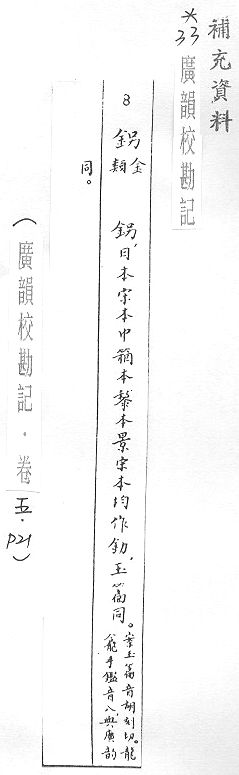 補充資料
*33 廣韻校勘記
8 鋁金類 鋁,日本宋本巾箱本黎本景宋本均作勆,玉篇同。案玉篇音胡刻切。龍
龕手鑑音入,與廣韵
同。
(廣韻校勘記.卷五.P21)